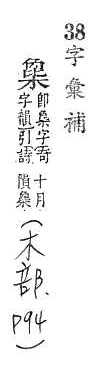 38字彙補
即字奇
字韻引詩
十月
隕
(木部.P94)